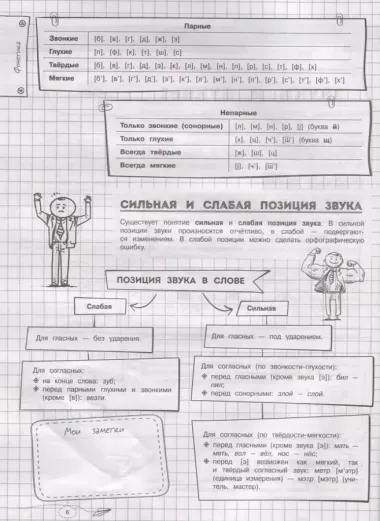 Фонетика
Парные
Звонкие [б], [в], [г], [д], [ж], [з]
Глухие [п], [ф], [к], [т], [ш], [с]
Твёрдые [б], [в], [г], [д], [з], [к], [л], [м], [н], [п], [р], [с], [т], [ф], [х]
Мягкие [б'], [в'], [г'], [д'], [з'], [к'], [л'], [м'], [н'], [п'], [р'], [с'], [т'], [ф'], [х']
Непарные
Только звонкие (сонорные) [л], [м], [н], [р], [j] (буква й)
Только глухие [х], [ц], [ч'], [ш'] (буква щ)
Всегда твёрдые [ж], [ш], [ц]
Всегда мягкие [j], [ч'], [ш']
СИЛЬНАЯ И СЛАБАЯ ПОЗИЦИЯ ЗВУКА
Существует понятие сильная и слабая позиция звука. В сильной
позиции звуки произносятся отчётливо, в слабой — подвергают-
ся изменениям. В слабой позиции можно сделать орфографическую
ошибку.
ПОЗИЦИЯ ЗВУКА В СЛОВЕ
Слабая
Сильная
Для гласных — без ударения.
Для гласных — под ударением.
Для согласных:
на конце слова: зуб;
перед парными глухими и звонкими
(кроме [в]): везти.
Для согласных (по звонкости-глухости):
перед гласными (кроме звука [э]): бил —
пил;
перед сонорными: злой — слой.
Мои заметки
Для согласных (по твёрдости-мягкости):
перед гласными (кроме звука [э]): мать —
мять, вол — вёл, нос — нёс;
перед [э] возможен как мягкий, так
и твёрдый согласный звук: метр [м'этр]
(единица измерения) — мэтр [мэтр] (учи-
тель, мастер).
6